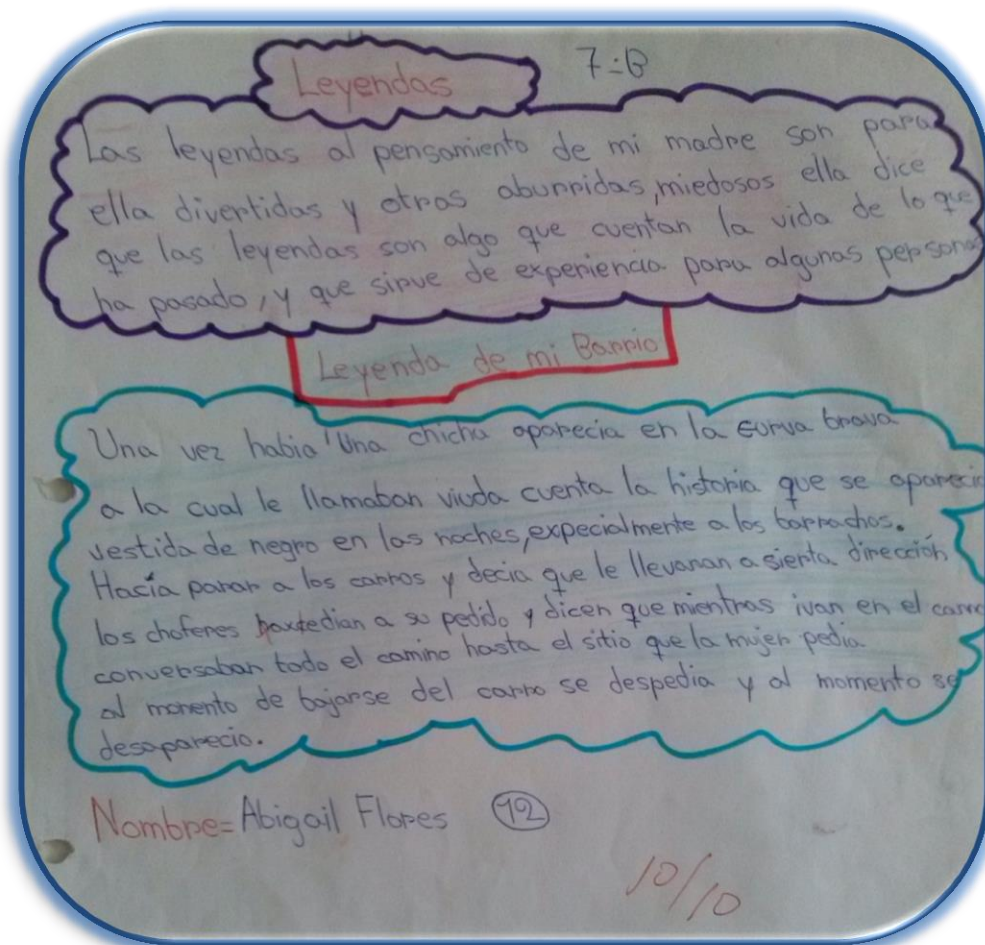 Leyendas 7=B
Las leyendas al pensamiento de mi madre son para
ella divertidas y otros aburridas, miedosos ella dice
que las leyendas son algo que cuentan la vida de lo que
ha pasado, y que sirve de experiencia para algunas persona
Leyenda de mi Barrio
Una vez habia Una chicha aparecia en la curva brava
a la cual le llamaban viuda cuenta la historia que se aparecio
vestida de negro en las noches, expecialmente a los borrachos.
Hacía parar a los carros y decia que le llevaran a sierta dirección
los choferes a su pedido y dicen que mientras ivan en el carro
conversaban todo el camino hasta el sitio que la mujer pedia
al momento de bajarse del carro se despedia y al momento se
desaparecio.
Nombre= Abigail Flores 12
10/10